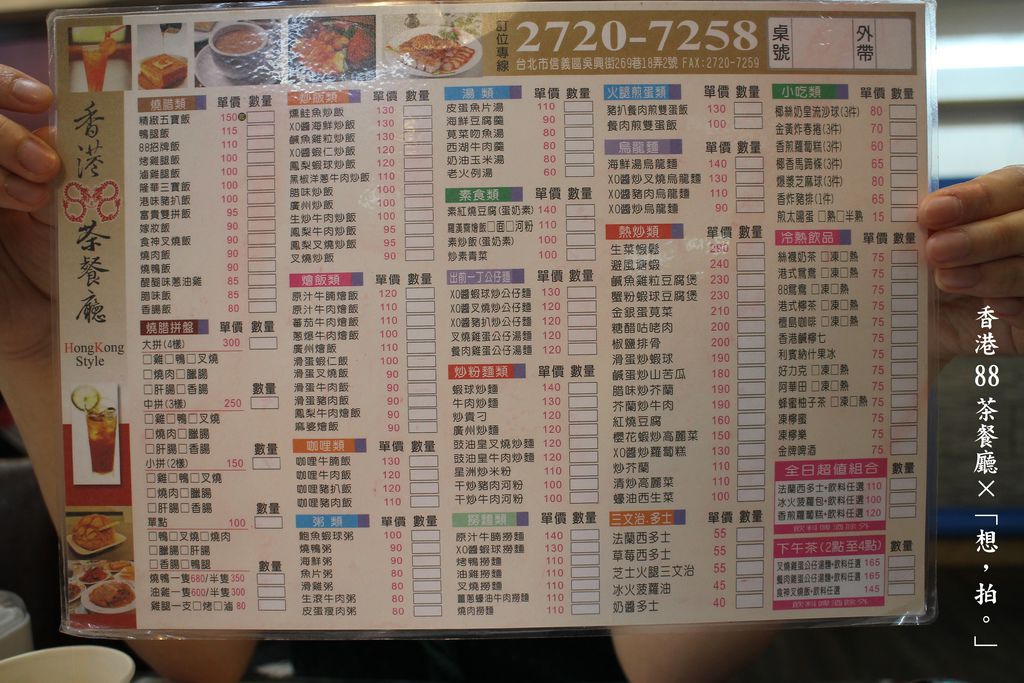 訂位專線 2720-7258
台北市信義區吳興街269巷18弄2號 FAX:2720-7259
桌號
外帶
香港茶餐廳
HongKong
Style
燒腊類 單價 數量
精緻五寶飯 150
鴨腿飯 115
88招牌飯 110
烤雞腿飯 100
滷雞腿飯 100
隆華三寶飯 100
港味豬扒飯 100
富貴雙拼飯 95
嫁妝飯 90
食神叉燒飯 90
燒肉飯 90
燒鴨飯 90
醍醐味蔥油雞 85
腊味飯 85
香腸飯 80
燒腊拼盤 單價 數量
大拼(4樣) 300
□雞□鴨□叉燒
□燒肉□臘腸
□肝腸□香腸
中拼(3樣) 250 數量
□雞□鴨□叉燒
□燒肉□臘腸
□肝腸□香腸
小拼(2樣) 150 數量
□雞□鴨□叉燒
□燒肉□臘腸
□肝腸□香腸
單點 100 數量
□鴨□叉燒□燒肉
□臘腸□肝腸
□香腸□鴨腿
燒鴨一隻680/半隻350 數量
油雞一隻600/半隻300
雞腿一支□烤□滷 80
炒飯類 單價 數量
燻鮭魚炒飯 130
XO醬海鮮炒飯 130
鹹魚雞粒炒飯 130
XO醬蝦仁炒飯 100
鳳梨蝦球炒飯 100
黑椒洋蔥牛肉炒飯 110
腊味炒飯 100
廣州炒飯 100
生炒牛肉炒飯 90
鳳梨牛肉炒飯 90
鳳梨叉燒炒飯 90
叉燒炒飯 90
燴飯類 單價 數量
原汁牛腩燴飯 120
原汁牛肚燴飯 120
蕃茄牛肉燴飯 110
蔥爆牛肉燴飯 110
廣州燴飯 100
滑蛋蝦仁飯 100
滑蛋叉燒飯 90
滑蛋牛肉飯 90
滑蛋豬肉飯 90
鳳梨牛肉燴飯 90
麻婆燴飯 90
咖哩類 單價 數量
咖哩牛腩飯 130
咖哩牛肚飯 130
咖哩豬扒飯 110
咖哩豬肉飯 100
粥類 單價 數量
鮑魚蝦球粥 100
燒鴨粥 90
海鮮粥 90
魚片粥 80
滑雞粥 80
生滾牛肉粥 80
皮蛋瘦肉粥 80
湯類 單價 數量
皮蛋魚片湯 110
海鮮豆腐羹 90
莧菜吻魚湯 80
西湖牛肉羹 80
奶油玉米湯 60
老火例湯 60
素食類 單價 數量
素紅燒豆腐(蛋奶素) 140
羅漢齋燴飯□面□河粉 110
素炒飯(蛋奶素) 100
炒素青菜 100
出前一丁公仔麵 單價 數量
XO醬蝦球炒公仔麵 130
XO醬叉燒炒公仔麵 120
XO醬豬扒炒公仔麵 120
叉燒雞蛋公仔湯麵 100
餐肉雞蛋公仔湯麵 100
炒粉麵類 單價 數量
蝦球炒麵 140
牛肉炒麵 130
炒貴刁 120
廣州炒麵 120
豉油皇叉燒炒麵 110
豉油皇牛肉炒麵 110
星洲炒米粉 110
干炒豬肉河粉 100
干炒牛肉河粉 100
撈麵類 單價 數量
原汁牛腩撈麵 140
XO醬蝦球撈麵 130
烤鴨撈麵 110
油雞撈麵 110
叉燒撈麵 110
薑蔥蠔油牛肉撈麵 110
燒肉撈麵 110
火腿煎蛋類 單價 數量
豬扒餐肉煎雙蛋飯 130
餐肉煎雙蛋飯 100
烏龍麵 單價 數量
海鮮湯烏龍麵 140
XO醬炒叉燒烏龍麵 110
XO醬豬肉烏龍麵 110
XO醬炒烏龍麵 90
熱炒類 單價 數量
生菜蝦鬆 280
避風塘蝦 240
鹹魚雞粒豆腐煲 230
蟹粉蝦球豆腐煲 230
金銀蛋莧菜 210
糖醋咕咾肉 200
椒鹽排骨 200
滑蛋炒蝦球 190
鹹蛋炒山苦瓜 180
腊味炒芥蘭 180
芥蘭炒牛肉 180
紅燒豆腐 160
櫻花蝦炒高麗菜 150
XO醬炒蘿蔔糕 130
炒芥蘭 110
清炒高麗菜 110
蠔油西生菜 100
三文治.多士 單價 數量
法蘭西多士 55
草莓西多士 55
芝士火腿三文治 55
冰火菠蘿油 45
奶醬多士 40
小吃類 單價 數量
椰絲奶皇流沙球(3件) 80
金黃炸春捲(3件) 70
香煎蘿蔔糕(3件) 60
椰香馬蹄條(3件) 65
爆漿芝麻球(3件) 80
香炸豬排(1件) 65
煎太陽蛋 □熟□半熟 15
冷熱飲品 單價 數量
絲襪奶茶 □凍□熱 75
港式鴛鴦 □凍□熱 75
88鴛鴦 □凍□熱 75
港式檸茶 □凍□熱 75
檀島咖啡 □凍□熱 75
香港鹹檸七 75
利賓納什果冰 75
好力克 □凍□熱 75
阿華田 □凍□熱 75
蜂蜜柚子茶 □凍□熱 75
凍檸蜜 75
凍檸樂 75
金牌啤酒 75
全日超值組合 數量
法蘭西多士+飲料任選 110
冰火菠蘿包+飲料任選 100
香煎蘿蔔糕+飲料任選 120
飲料啤酒除外
下午茶(2點至4點) 數量
叉燒雞蛋公仔湯麵+飲料任選 165
餐肉雞蛋公仔湯麵+飲料任選 165
食神叉燒飯+飲料任選 145
飲料啤酒除外
香港88茶餐廳×「想，拍。」